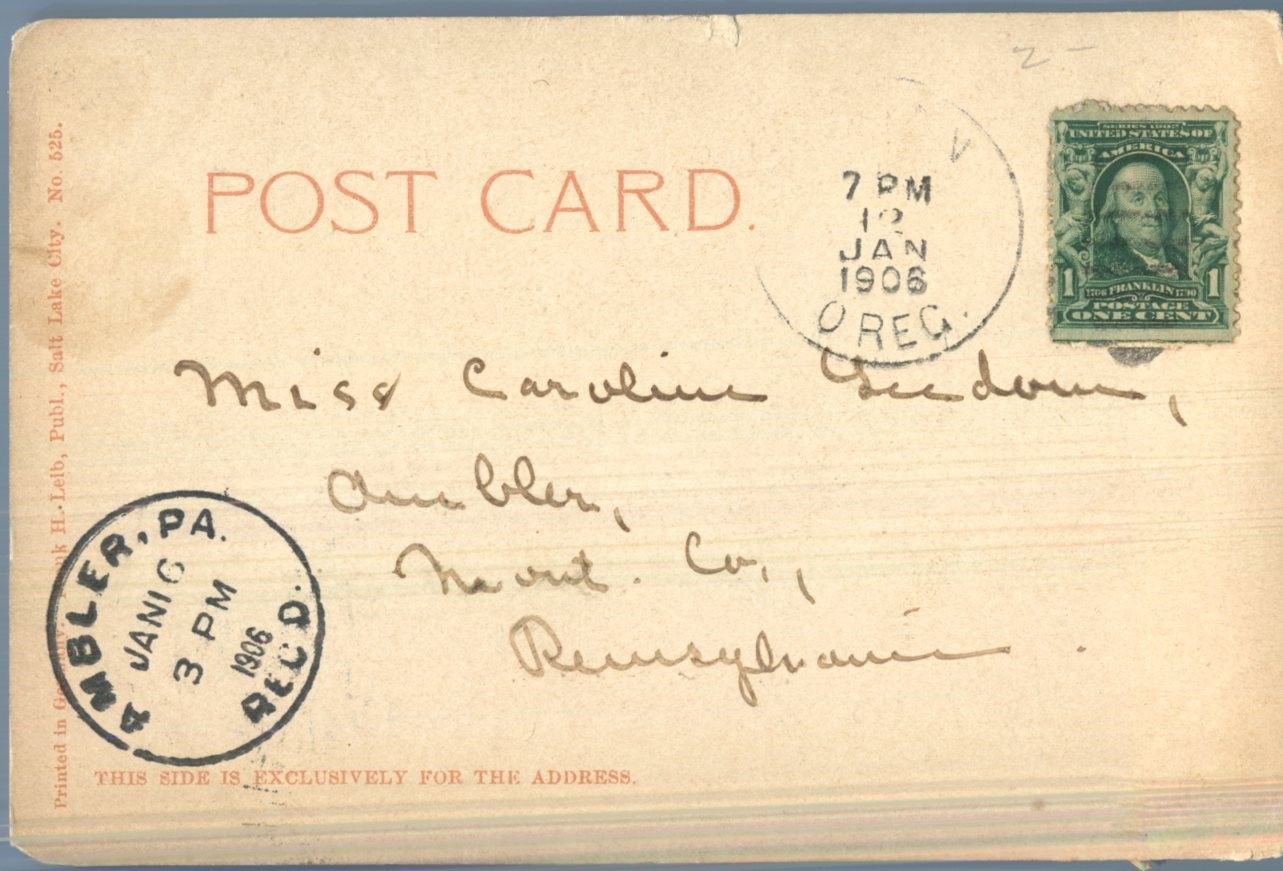 POST CARD.
7 PM
12
JAN
1906
OREG.
SERIES 1902
UNITED STATES OF
AMERICA
1 1706 FRANKLIN 1790 1
POSTAGE
ONE CENT
Miss Caroline
Ambler,
Mont. Co.,
Pennsylvania.
AMBLER, PA.
JAN 16
3 PM
1906
REC'D.
THIS SIDE IS EXCLUSIVELY FOR THE ADDRESS.
Printed in H. Leib, Publ., Salt Lake City. No. 525.